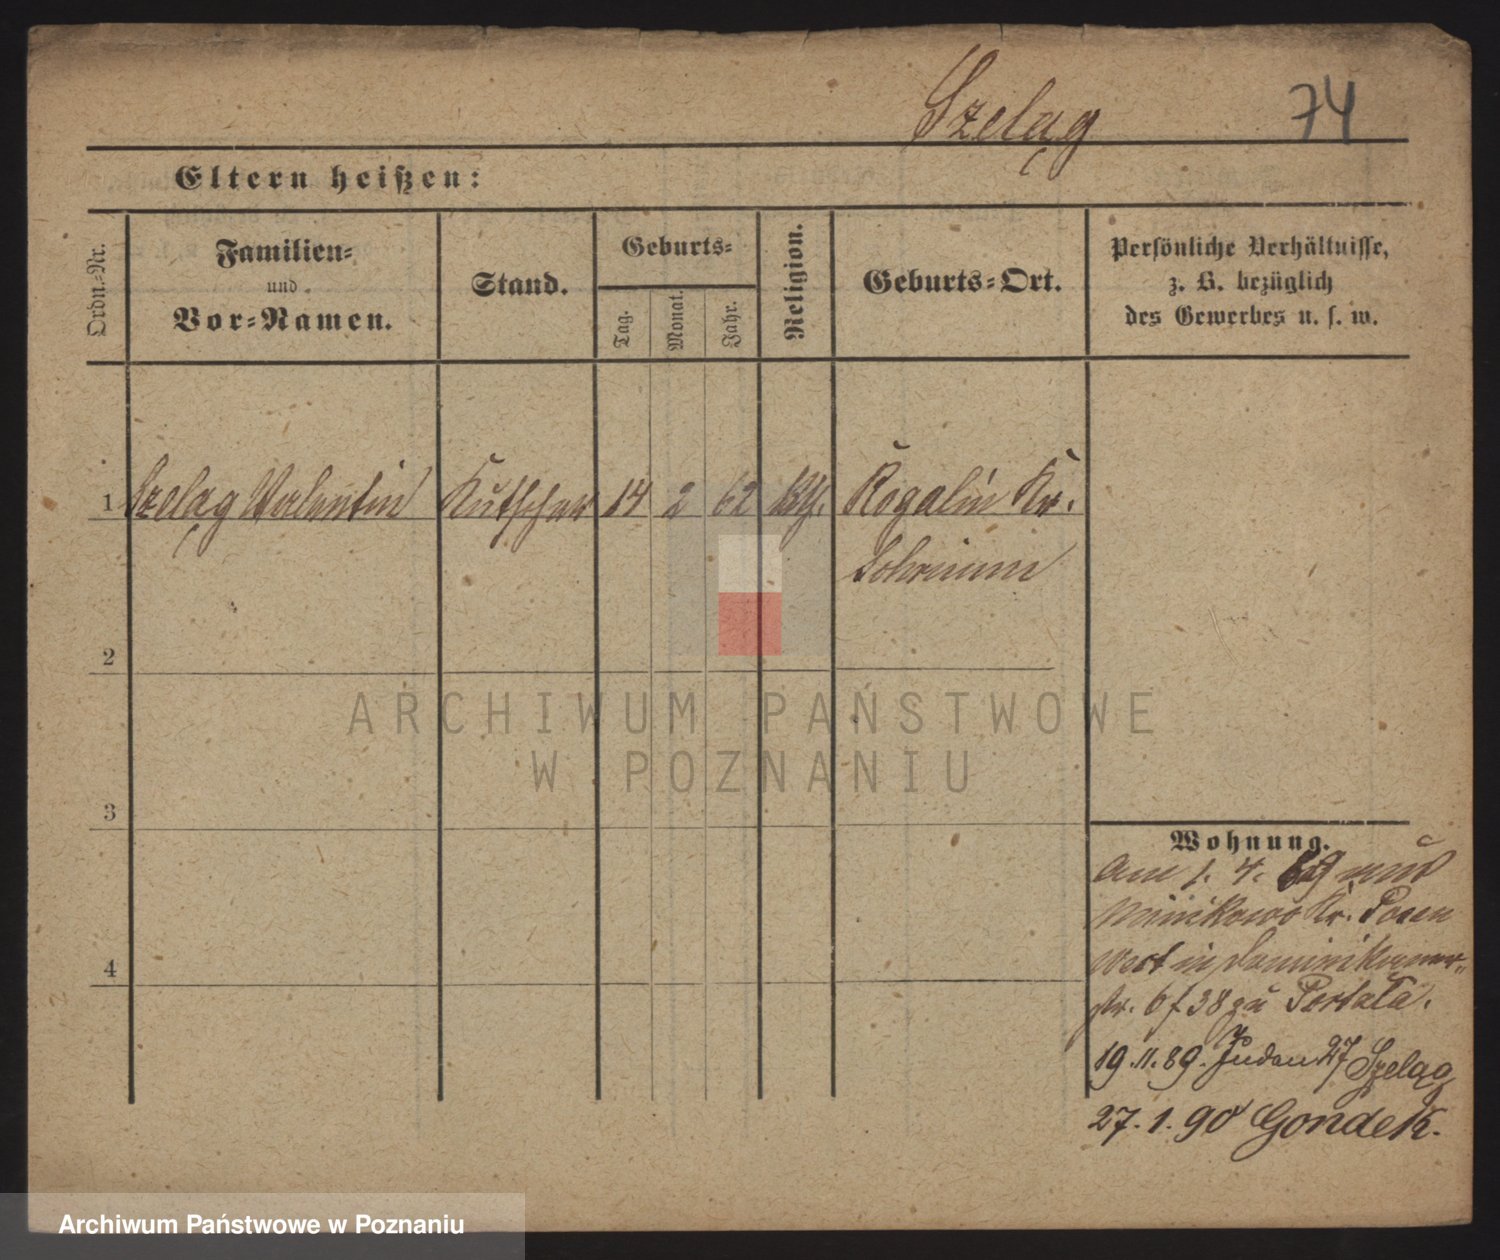 Szeląg 74
Eltern heißen:
Ordn.-Nr.
Familien-
und
Vor-Namen.
Stand.
Geburts-
Tag.
Monat.
Jahr.
Religion.
Geburts-Ort.
Persönliche Verhältnisse,
z. B. bezüglich
des Gewerbes u. s. w.
1 Szeląg Valentin Kutscher 14 2 62 kth. Rogalin Kr.
Schrimm
2
3
4
Wohnung.
am 1. 4. 89 aus
Minikowo Kr. Posen
West in Dominikaner-
str. 6 f 38 zu
19.11.89. Juden 27 Szeląg
27.1.90 Gondek.
ARCHIWUM PAŃSTWOWE
W POZNANIU
Archiwum Państwowe w Poznaniu